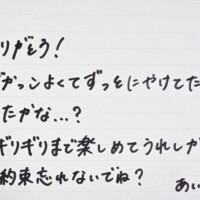 りがそう!
がっこよくてずっとにやけてた
たかな...?
ギリギリまで楽しめてうれしか
約束忘れないでね?
あい